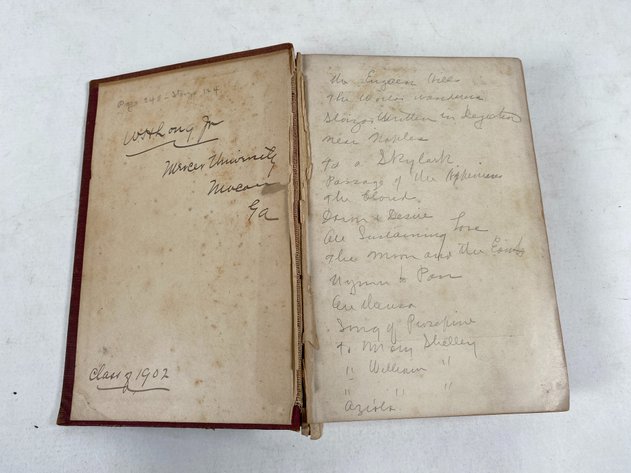 Page 248 - Stanza 124
W S H Long Jr
Mercer University
Macon
Ga
Class of 1902
the Eugean Hills
The Worlds Wanderers
Stanzas Written in Dejection
near Naples
To a Skylark
Passage of the Apennines
The Cloud
Desire
All Sustaining Love
The Moon and the Earth
Hymn to Pan
Arethusa
Song of Proserpine
to Mary Shelley
" William "
" " "
Aziola